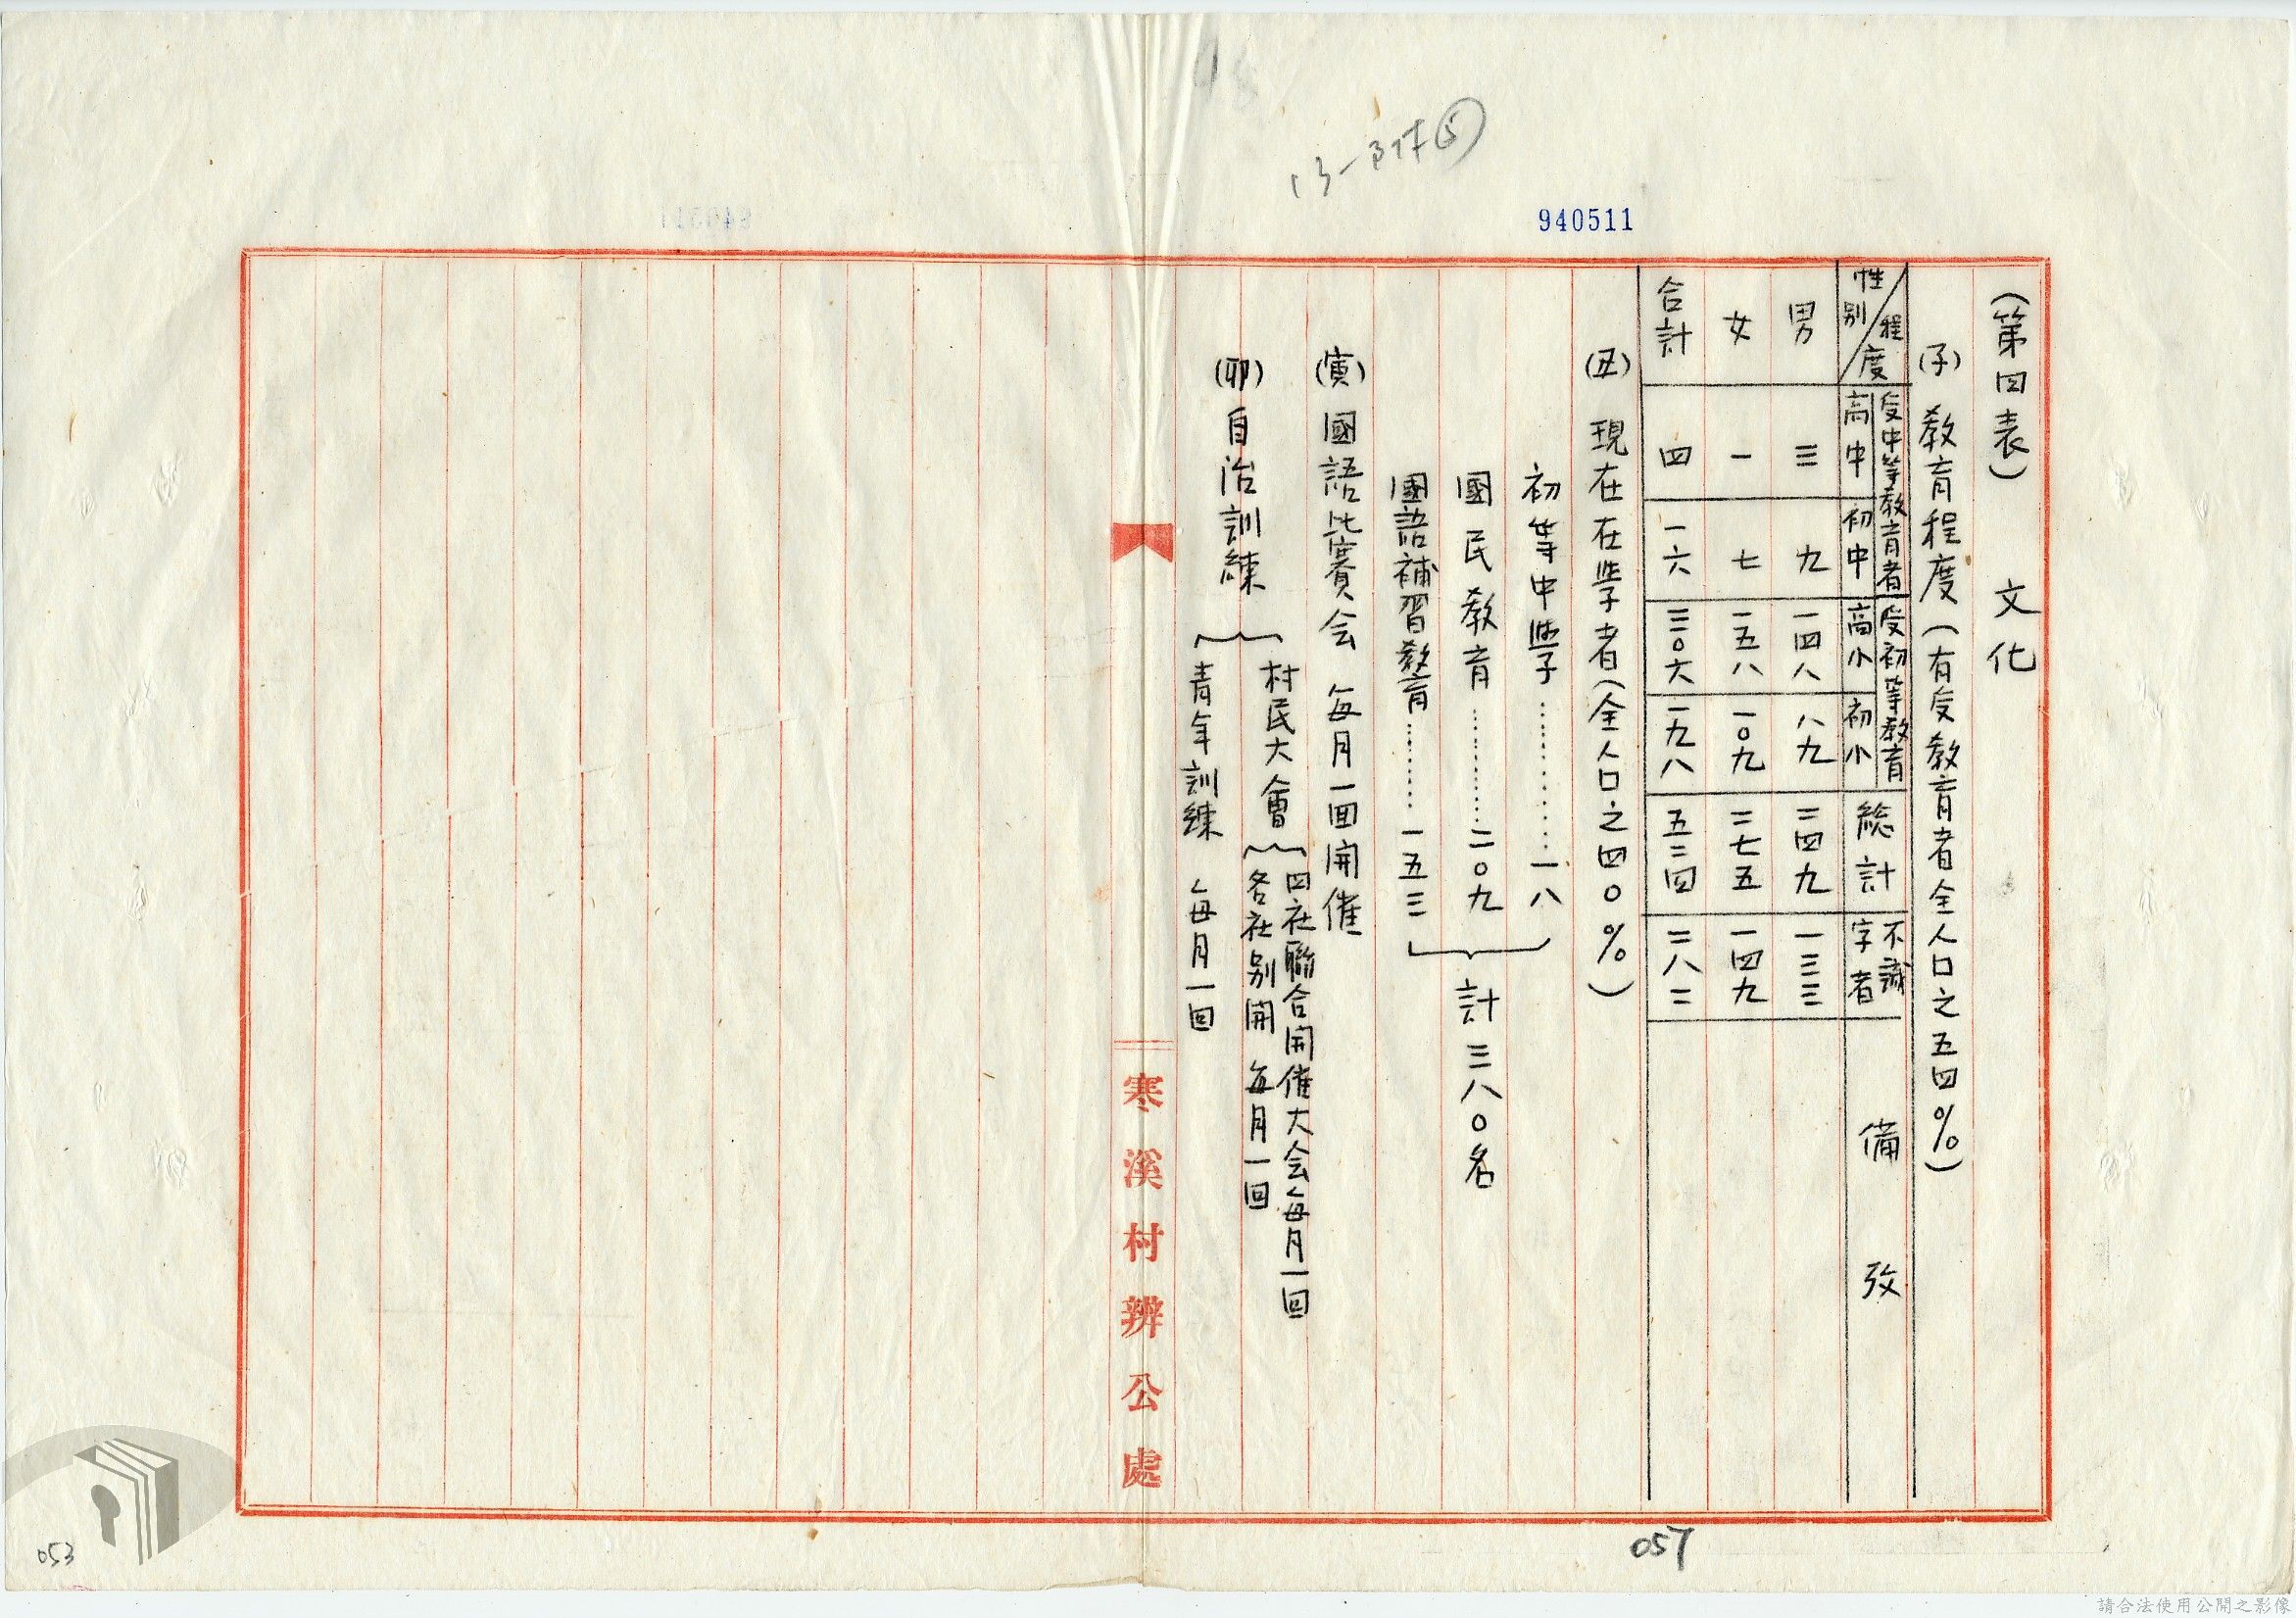 13-附⑤
940511
（第四表）　文化
（子）教育程度（有受教育者全人口之五四％）
性別／程度　受中等教育者　高中　初中　受初等教育　高小　初小　総計　不識字者　備攷
男　三　九　一四八　八九　二四九　一三三
女　一　七　一五八　一〇九　二七五　一四九
合計　四　一六　三〇六　一九八　五二四　二八二
（丑）現在在学者（全人口之四〇％）
初等中学…………一八
國民教育…………二〇九
國語補習教育………一五三
計三八〇名
（寅）國語比賽会　每月一回開催
（卯）自治訓練
村民大會
四社聯合開催大会每月一回
各社别開　每月一回
青年訓練　每月一回
寒溪村辦公處
057
053
請合法使用公開之影像